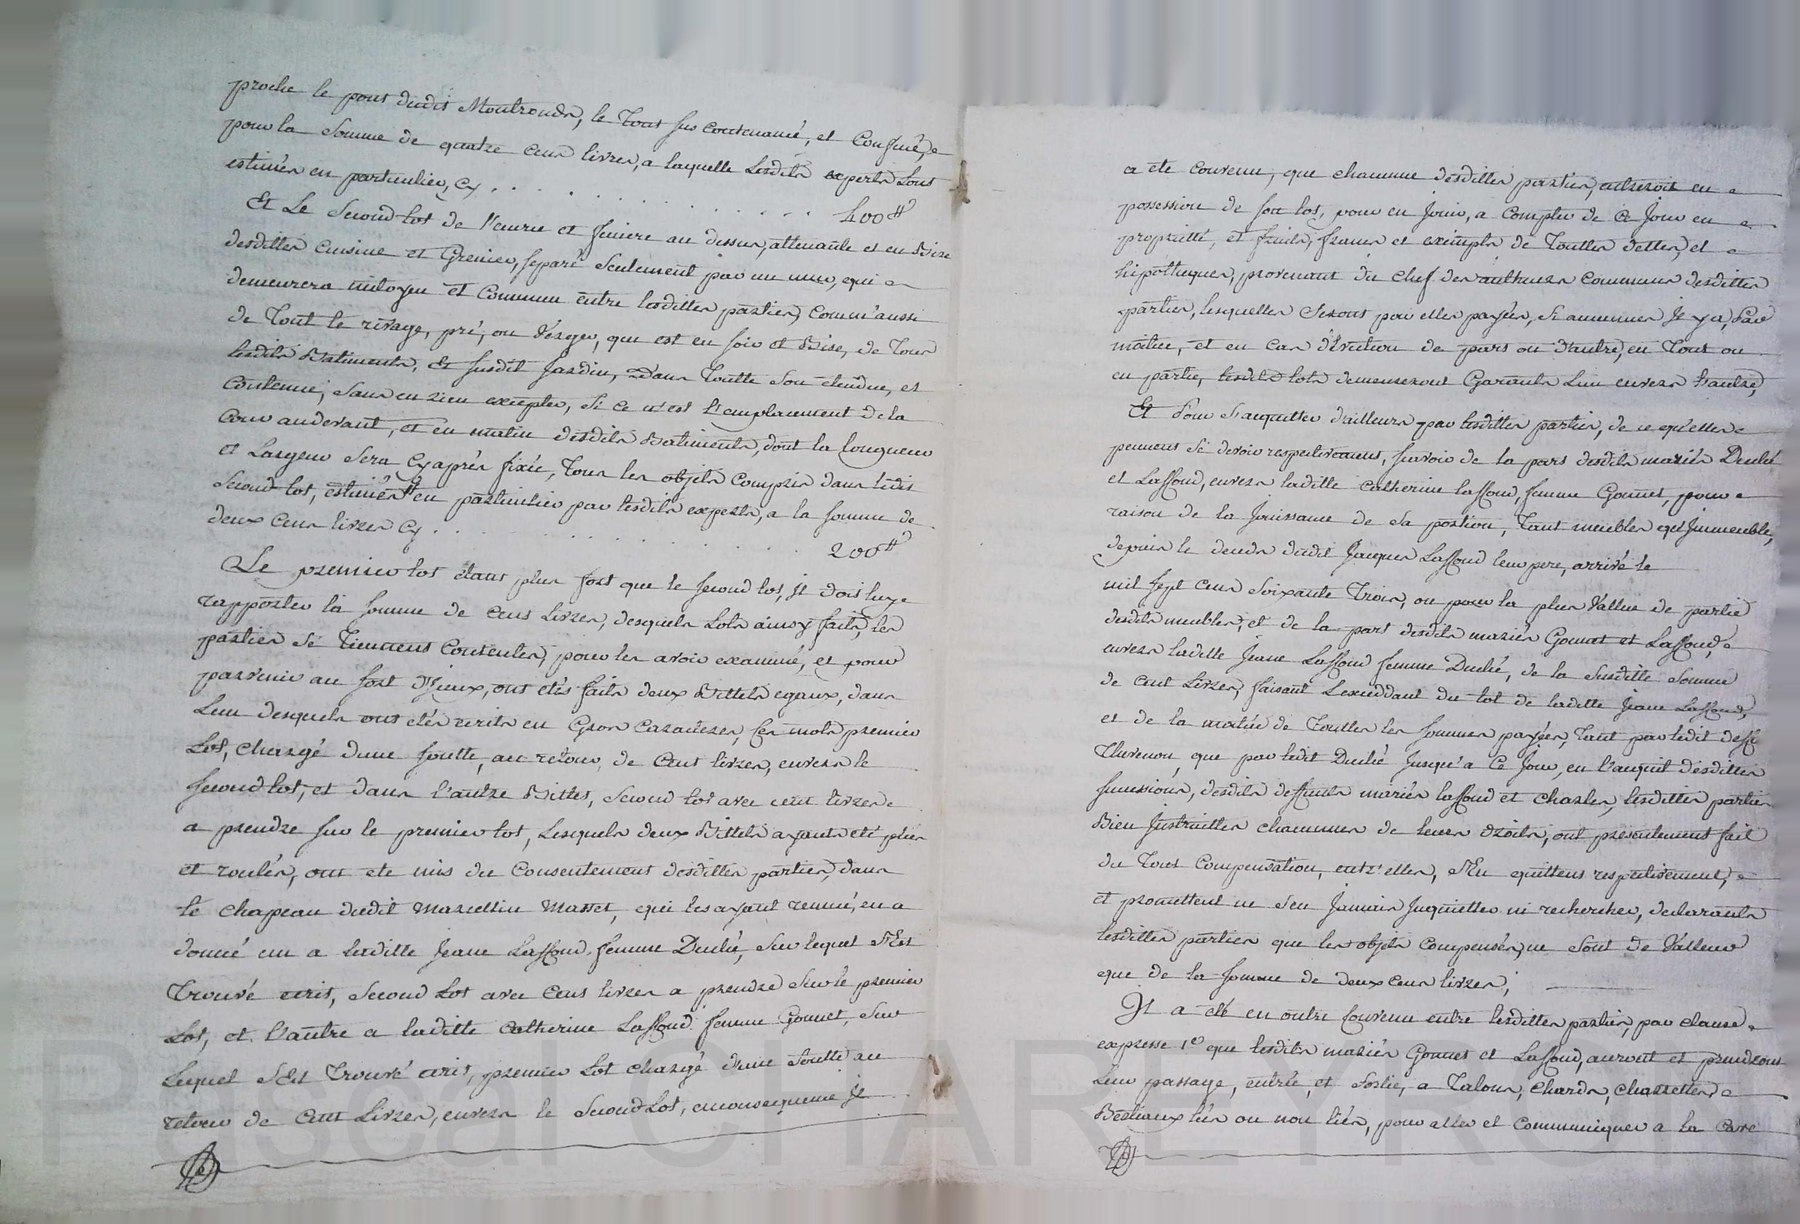 proche le pont dudit Montrond, le Tout sus contenancé, et Confiné, e
pour la Somme de quatre Cens livres, a laquelle Lesdits experts Lont
estimés en particulier, Cy . . . . . . . . . . . . 400 ₶
Et Le Second lot de l'ecurie et feniere au dessus, attenante et en Bize
desdittes Cuisine et Grenier, separé Seulement par un mur, qui
demeurera mitoyen et Commun entre lesdittes parties, Comm'aussi
de Tout le rivage, pré, ou Verger, qui est en soir et Bise, de Tous
lesdits Batiments, et susdit Jardin, Dans Toutte Son étendue, et
Contenue, Sans en rien excepter, Si ce n'est L'emplacement de la
Cour audevant, et en matin desdits Batiments, dont la longueur
et Largeur Sera Cy après fixée, Tous les objets Compris dans ledit
Second lot, estimés en particulier par lesdits experts, a la Somme de
deux Cens livres Cy . . . . . . . . . . . . 200 ₶
Le premier lot étant plus fort que le second lot, Il doit luy
rapporter la somme de Cens Livres, desquels Lots ainsy faits, les
parties Se Tiennent Contentes, pour les avoir examiné, et pour
parvenir au fort d'Iceux, ont etés faits deux Billets egaux, dans
Lun desquels ont etés ecrits en Gros Caracteres, Ces mots premier
Lot, Chargé d'une soutte, au retour, de Cent livres, envers le
second lot, et dans l'autre Billet, Second lot avec cent livres
a prendre sur le premier lot, Lesquels deux Billets ayant eté pliés
et roulés, ont ete mis du Consentement desdittes parties, dans
le Chapeau dudit Marcellin Masset, qui les ayant remué, en a
donné un a laditte Jeane Laffond femme Duclié, Sur lequel S'Est
Trouvé ecrit, Second Lot avec Cens livres a prendre Sur le premier
Lot, et L'autre a laditte Catherine Laffond femme Gonnet, Sur
Lequel S'Est Trouvé ecrit, premier Lot chargé d'une Soutte au
retour de Cent Livres, envers le Second Lot, en consequence Il
a eté Convenu, que chacune desdittes parties, entreroit en
possession de son lot, pour en Jouir, a Compter de Ce Jour en
proprietté, et fruits, francs et exempts de Touttes dettes, et
hipotheques, provenant du Chef des autheurs Communs desdittes
parties, lesquelles Seront par elles payées, Si aucunes Il y a, Par
moitié, et en Cas d'éviction de part ou d'autre, en Tout ou
en partie, lesdits lots demeureront Garants Lun envers L'autre,
Et Pour S'acquitter d'ailleurs par lesdittes parties, de ce qu'elles
peuvent Se devoir respectivement, scavoir de la part desdits mariés Duclié
et Laffond, envers laditte Catherine laffond, femme Gonnet, pour
raison de la Jouissance de Sa portion, Tant meubles qu'Immeubles,
depuis le decés dudit Jacques Laffond leur pere, arrivé le
mil sept cens Soixante Trois, ou pour la plus Vallue de partie
desdits meubles, et de la part desdits mariés Gonnet et Laffond,
envers laditte Jeane Laffond femme Duclié, de la Susditte Somme
de Cent Livres, faisant L'exceddant du lot de laditte Jeane Laffond,
et de la moitié de Touttes les Sommes payées, Tant par ledit deff
Thevenon, que par ledit Duclié Jusqu'a Ce Jour, en L'acquit desdittes
successions, desdits deffunts mariés laffond et Charles, lesdittes parties
Bien Instruittes chacunes de leurs droits, ont presentement fait
du Tout Compensation, entr'elles, S'En quittent respectivement,
et promettent ne s'en Jamais Inquietter ni rechercher, declarants
lesdittes parties que les objets compensés, ne Sont de Valleur
que de la Somme de deux cens livres;
Il a eté en outre Convenu entre lesdittes parties, par clause
expresse 1o que lesdits mariés Gonnet et Laffond, auront et prendront
Leur passage, entrée, et Sortie, a Talons, Chards, Charrettes,
Bestiaux liés ou non liés, pour aller et Communiquer a la Cave